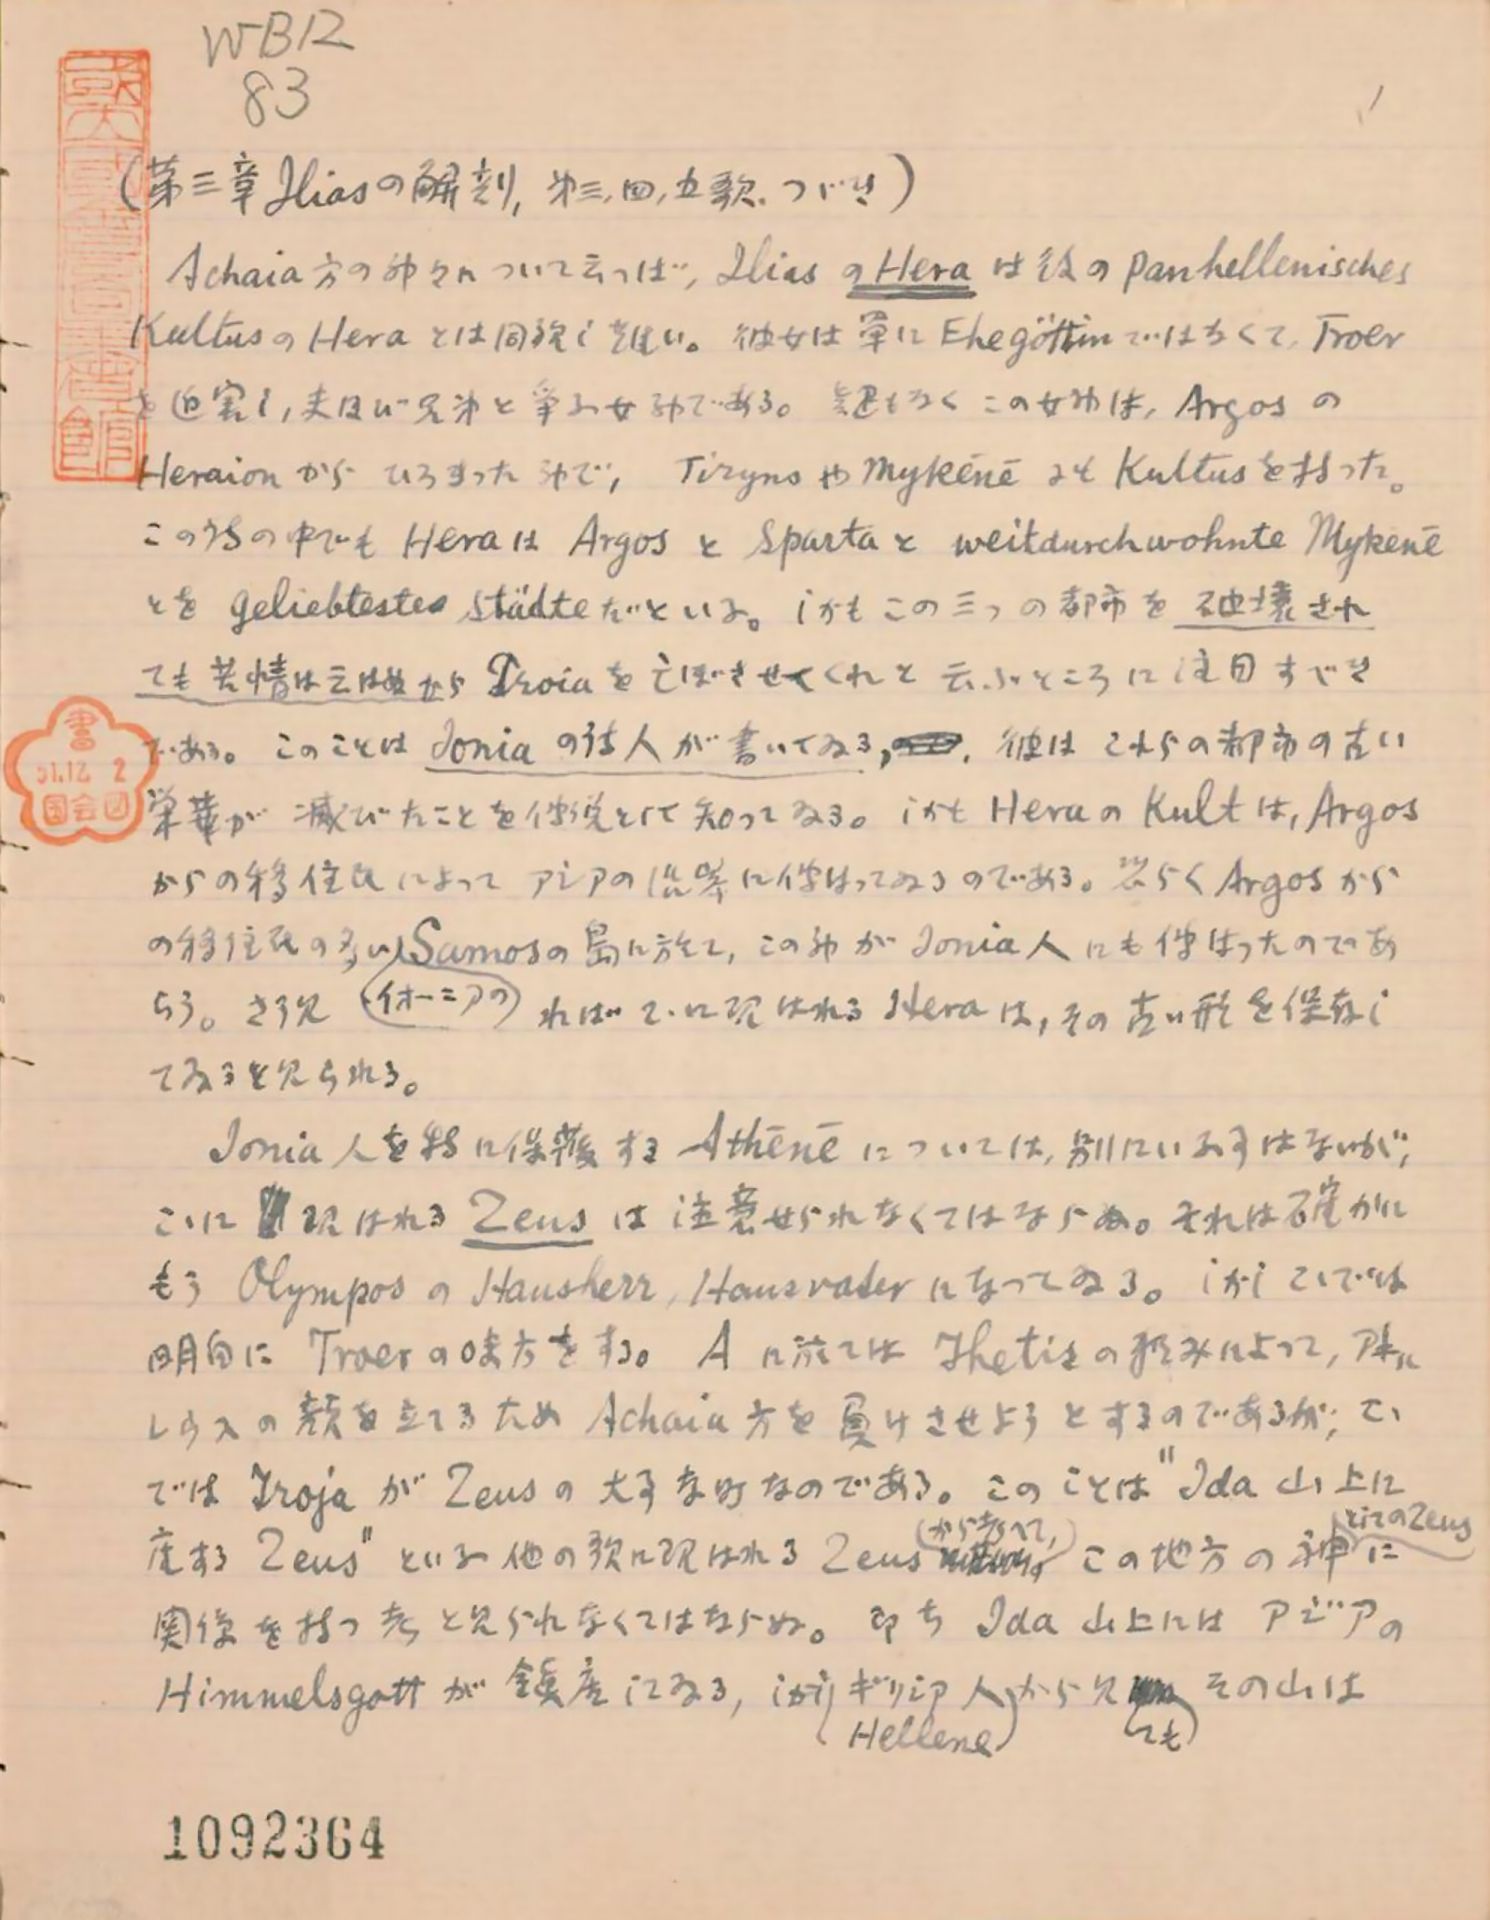 WB12
83
1
國立國會圖書館
(第三章 Iliasの解剖, 第三, 四, 五歌. つゞき)
Achaia方の神々について云つば", IliasのHeraは後のpanhellenisches
KultusのHeraとは同視し難い。彼女は単にEhegöttinではなくて, Troer
を迫害し, 夫及び兄弟と争ふ女神である。 なくこの女神は, Argosの
Heraionからひろまった神で, TirynsやMykēnēにもKultusを持った。
この詩の中でもHeraはArgosとSpartaとweitdurchwohnte Mykēnē
とをgeliebtestes städteだといふ。しかもこの三つの都市を破壊され
ても苦情は云はぬからTroiaを亡ぼさせてくれと云ふところに注目すべき
である。このことはIoniaの詩人が書いてゐる, 彼はこれらの都市の古い
栄華が滅びたことを伝説として知ってゐる。しかもHeraのKultは, Argos
からの移住民によってアジアの沿岸に伝はってゐるのである。恐らくArgosから
の移住民の多いSamosの島に於て, この神がIonia人にも伝はったのであ
らう。さう見(イオーニアの)ればこゝに現はれるHeraは, その古い形を保存し
てゐると見られる。
Ionia人を特に保護するAthēnēについては, 別にいふ事はないが,
こゝに現はれるZeusは注意せられなくてはならぬ。それは確かに
もうOlymposのHausherr, Hausvaterになってゐる。しかしこゝでは
明白にTroerの味方をする。Aに於てはThetisの頼みによって, アキレ
レウスの顔を立てるためAchaia方を負けさせようとするのであるが, こゝ
ではTrojaがZeusの大事な町なのである。このことは"Ida山上に
座するZeus"といふ他の歌に現はれるZeus(から考へて,)この地方の神(としてのZeus)に
関係を持つ者と見られなくてはならぬ。即ちIda山上にはアジアの
Himmelsgottが鎮座してゐる, しかしギリシア人(Hellene)から見(ても)その山は
1092364
書
31.12.2
国会図